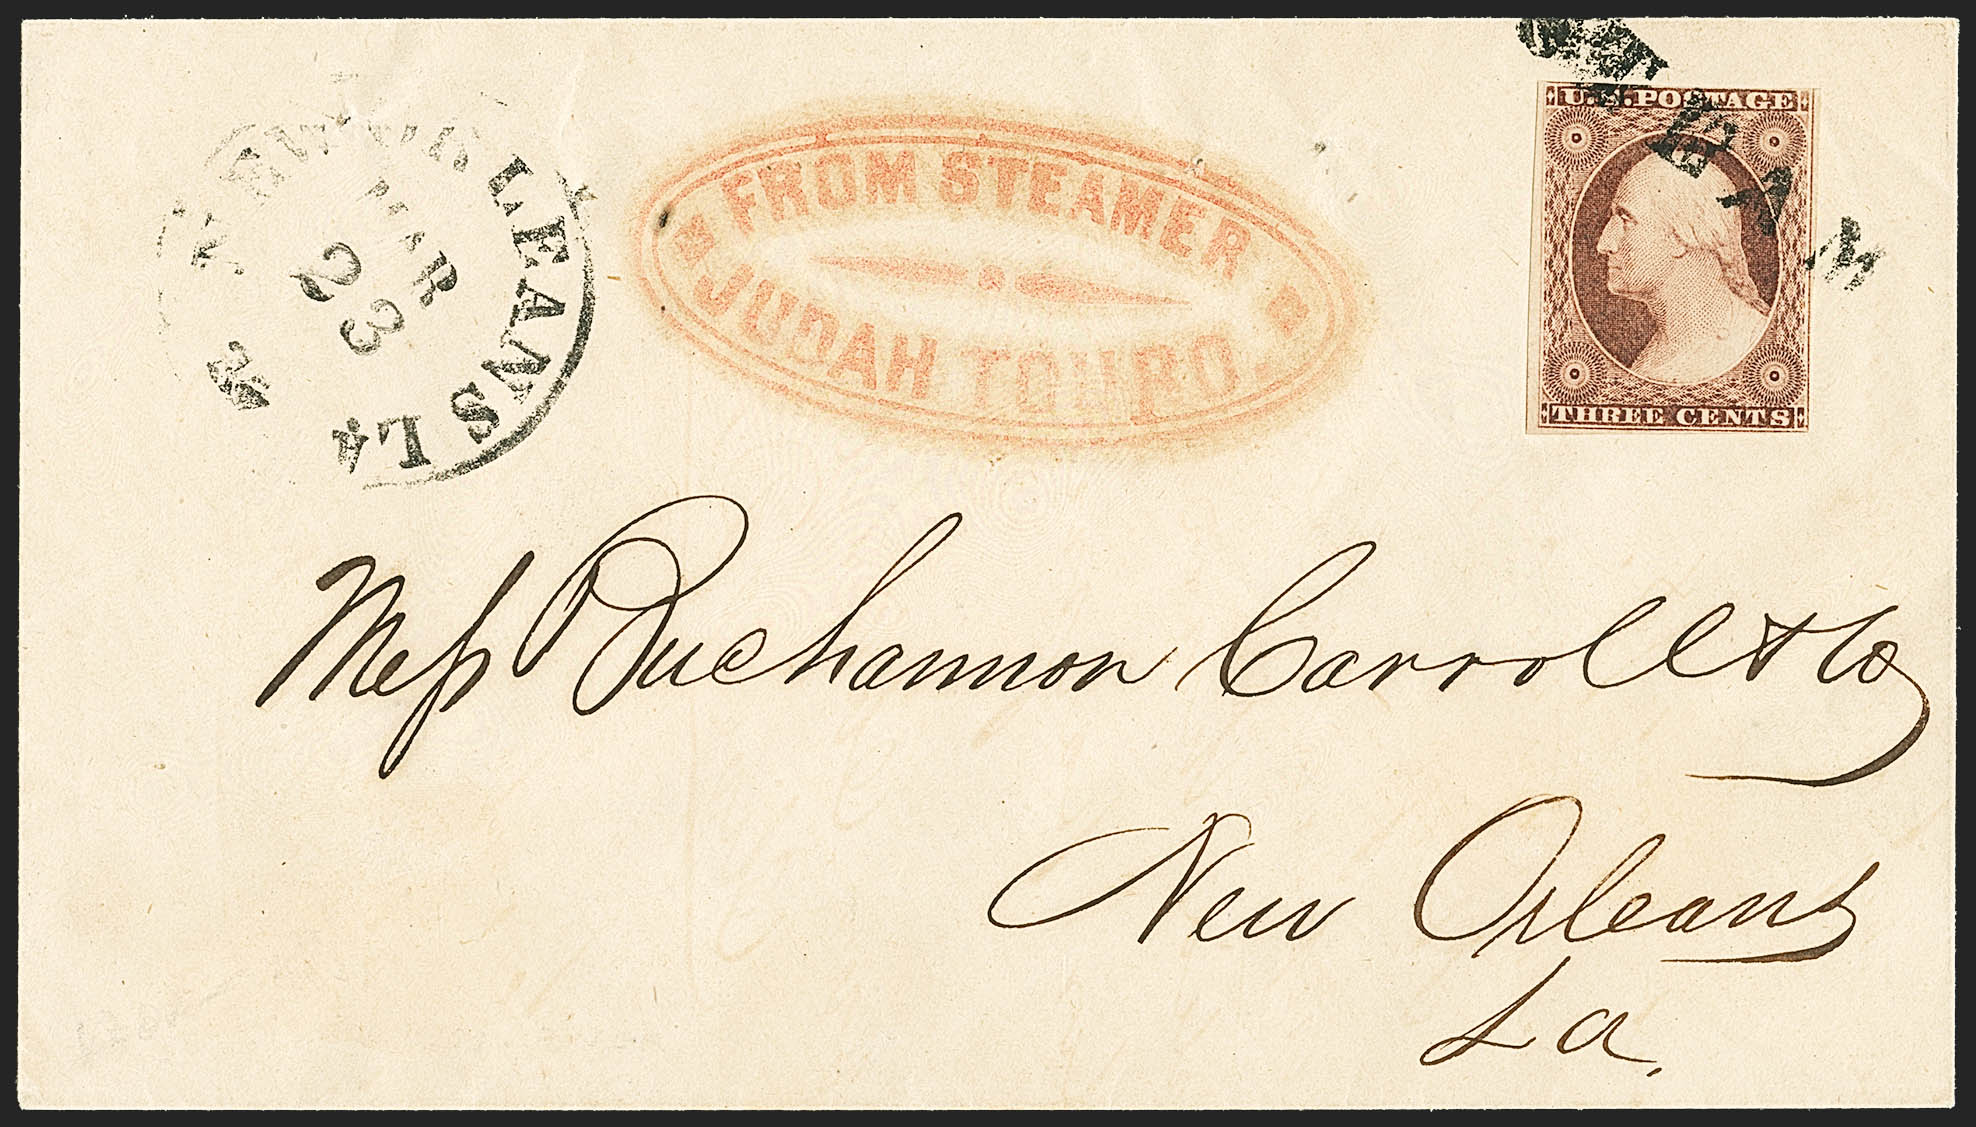 NEW ORLEANS LA
MAR
23
FROM STEAMER
JUDAH TOURO.
STEAM
U.S. POSTAGE
THREE CENTS
Mess Buchannon Carroll & Co
New Orleans
La.